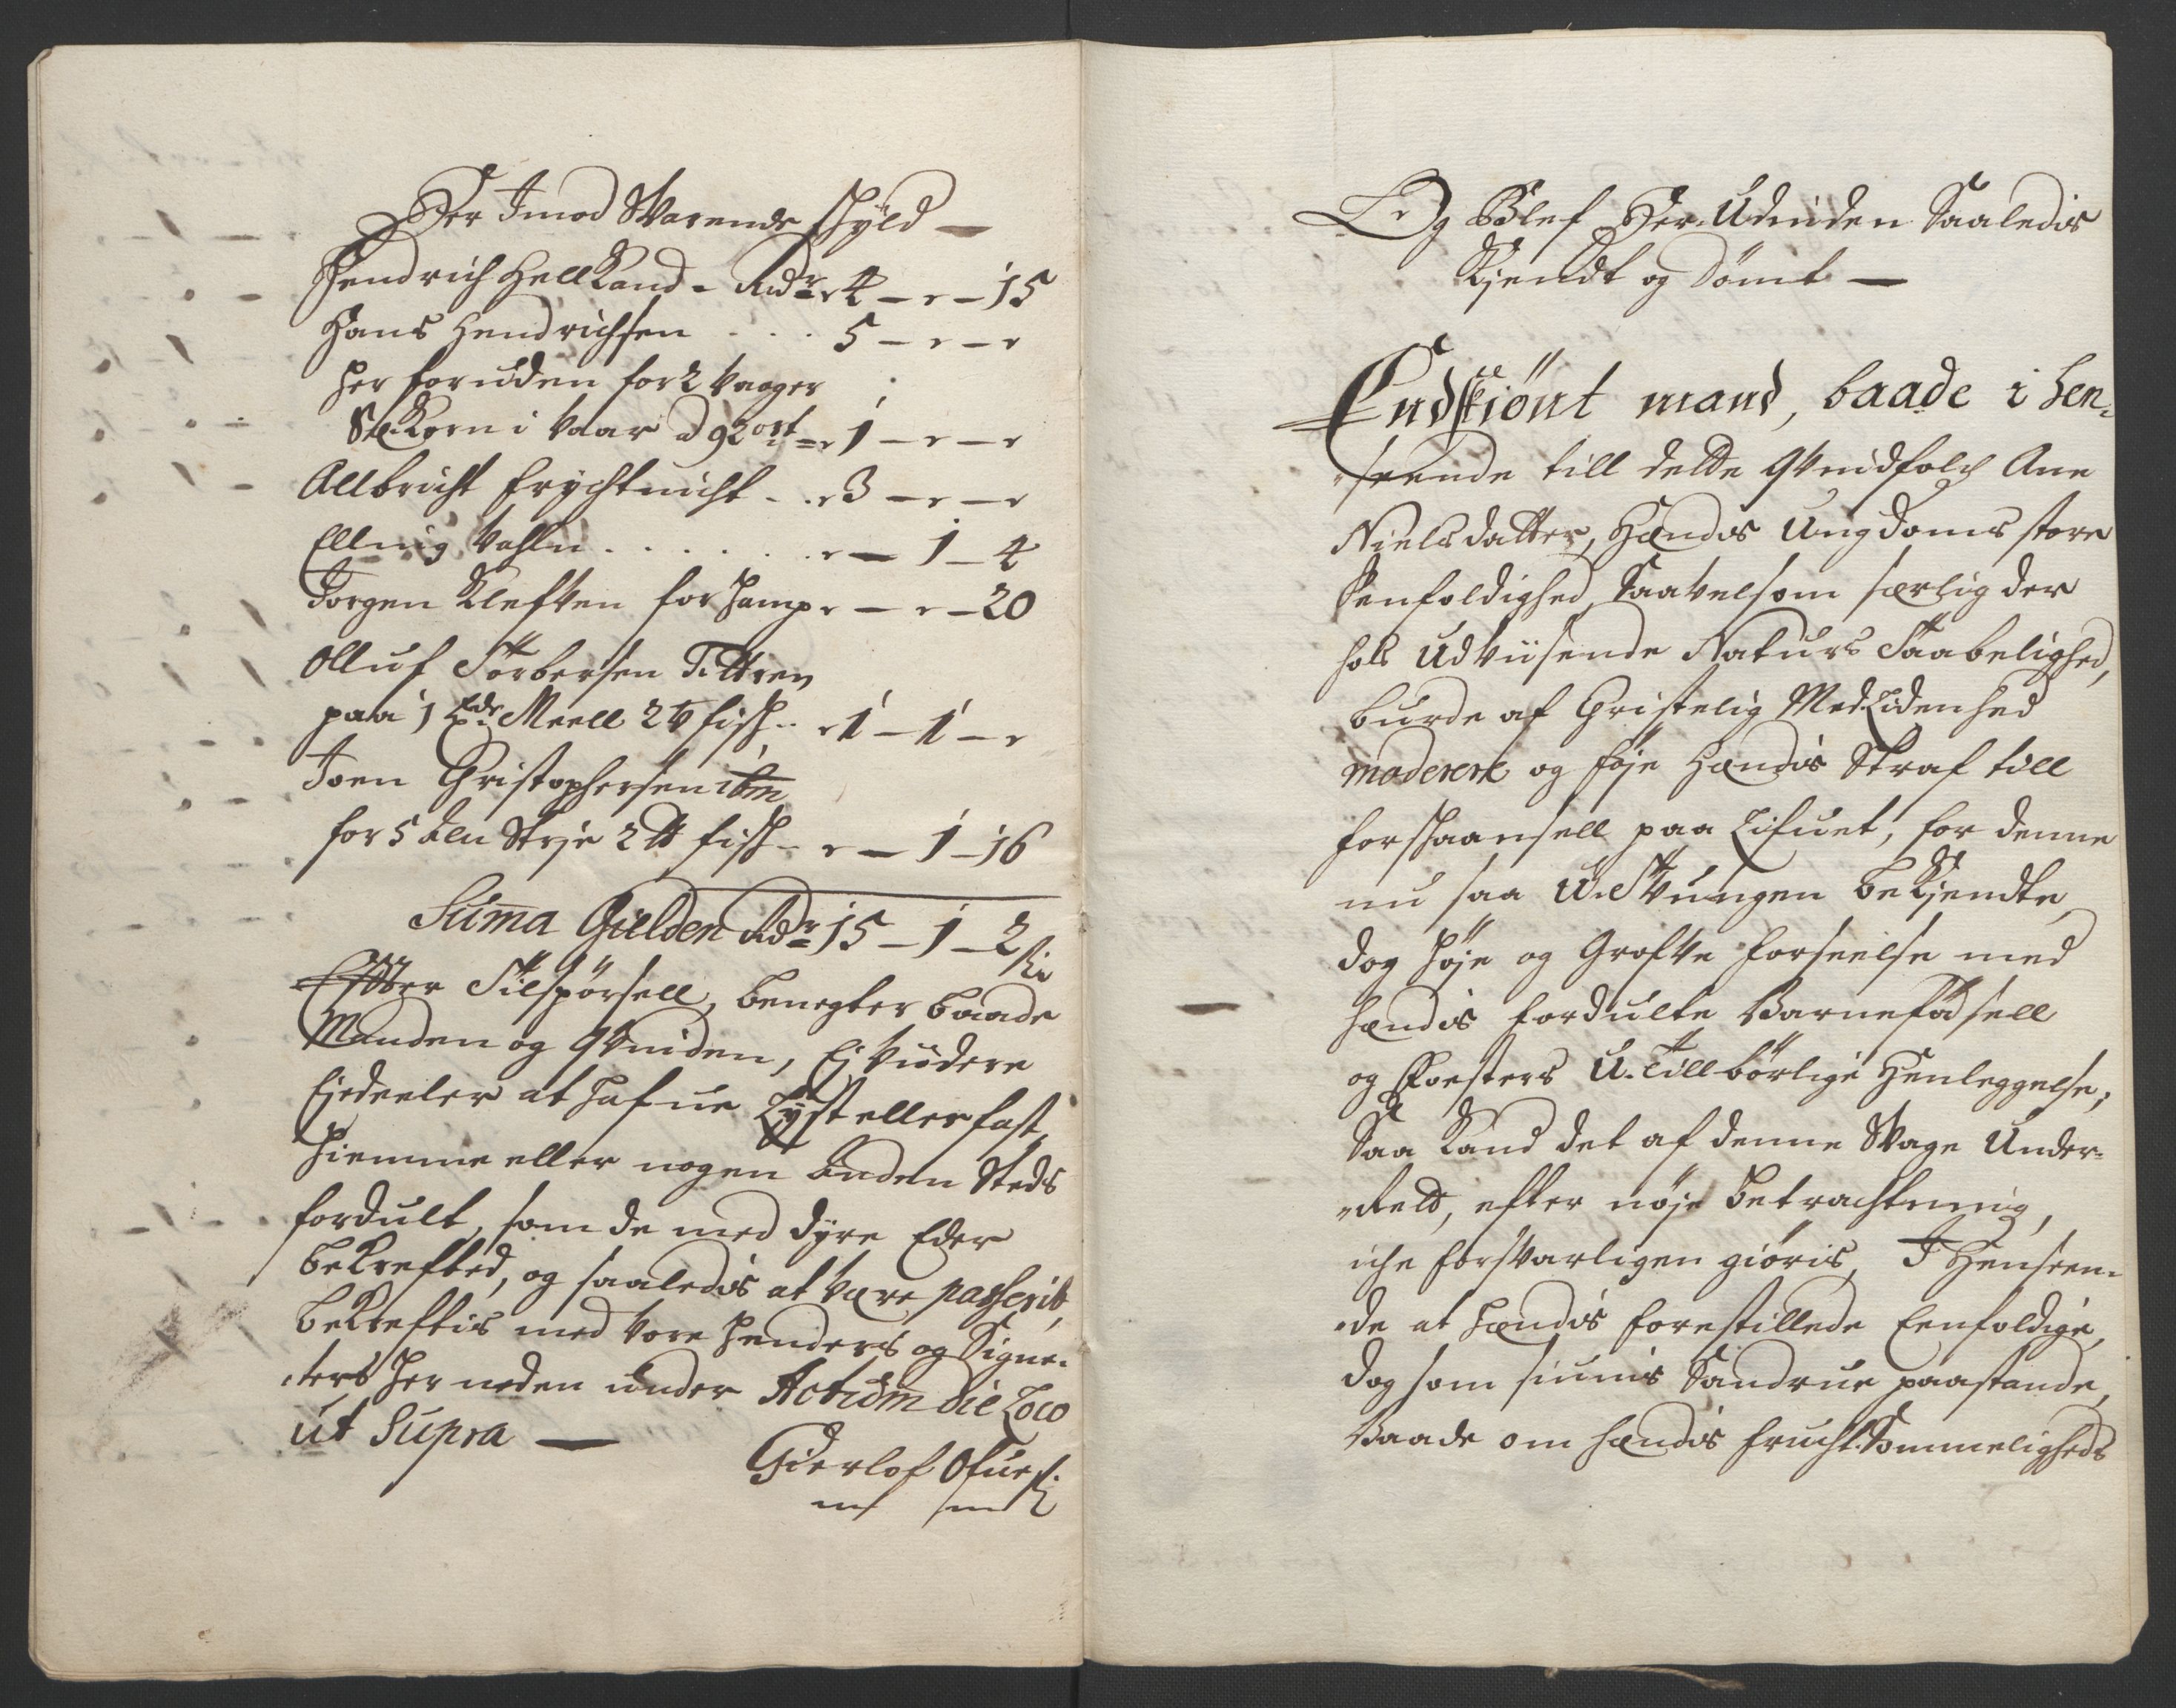 Der Imod Svarende Schyld —
Hendrich Hellkand - Rdr 4 — " — 15
Hans Hendrichsen . . . 5 — " — "
Her foruden for 2 Vaager
Sæ Korn i Vaar a 92 ort " 1 — " — "
Allbricht Frychtnicht - . " 3 — " — "
Elling Vassln . . . . . . " — 1 — 4
Jorgen Klefften for Hamp " — " — 20
Olluf Torbersen Tittren
paa 1 Meell 2 fisch " 1 — 1 — "
Joen Christophersen ibm
for 5 Alen Strje 2 fisch - " — 1 — 16
Suma Gielden Rdr 15 — 1 — 2
Effter Tilspørsell, benegter baade
Manden og Qvinden, Ej viidere
Eiedeeler at hafue Løst eller fast
hiemme eller nogen anden Steds
fordult, som de med dyre Eder
bekrefted, og saaledis at være passerit,
bekrefftis med vore Henders og Signe-
ters Her neden under Actum die Loco
ut Supra —
Gierlof Ofues
Og Blef Her Udinden Saaledis
Kjendt og Dømt —
Endskiönt mand, baade i hen-
seende till dette Qvindfolch Ane
Nielsdatter, Hændis Ungdoms store
Eenfoldighed, Saavelsom særlig der
hos Udviisende Naturs Taabelighed,
burde af Christelig MedLidenhed
moderere og føje Hændis Straf till
forschaansell paa Lifuet, for denne
nu saa U-Tvungen bekjendte,
dog høje og Grofve forseelse med
hændis fordulte Barnefødsell
og Fosters U-Tillbørlige Henleggelse;
Saa kand det af denne Svage Under-
Rett, efter nøje betrachtning,
iche forsvarligen giøris, I Henseen-
de at hændis forestillede Eenfoldige,
dog som siunis Sandrue paastande,
Baade om hændis fruchtSommeligheds